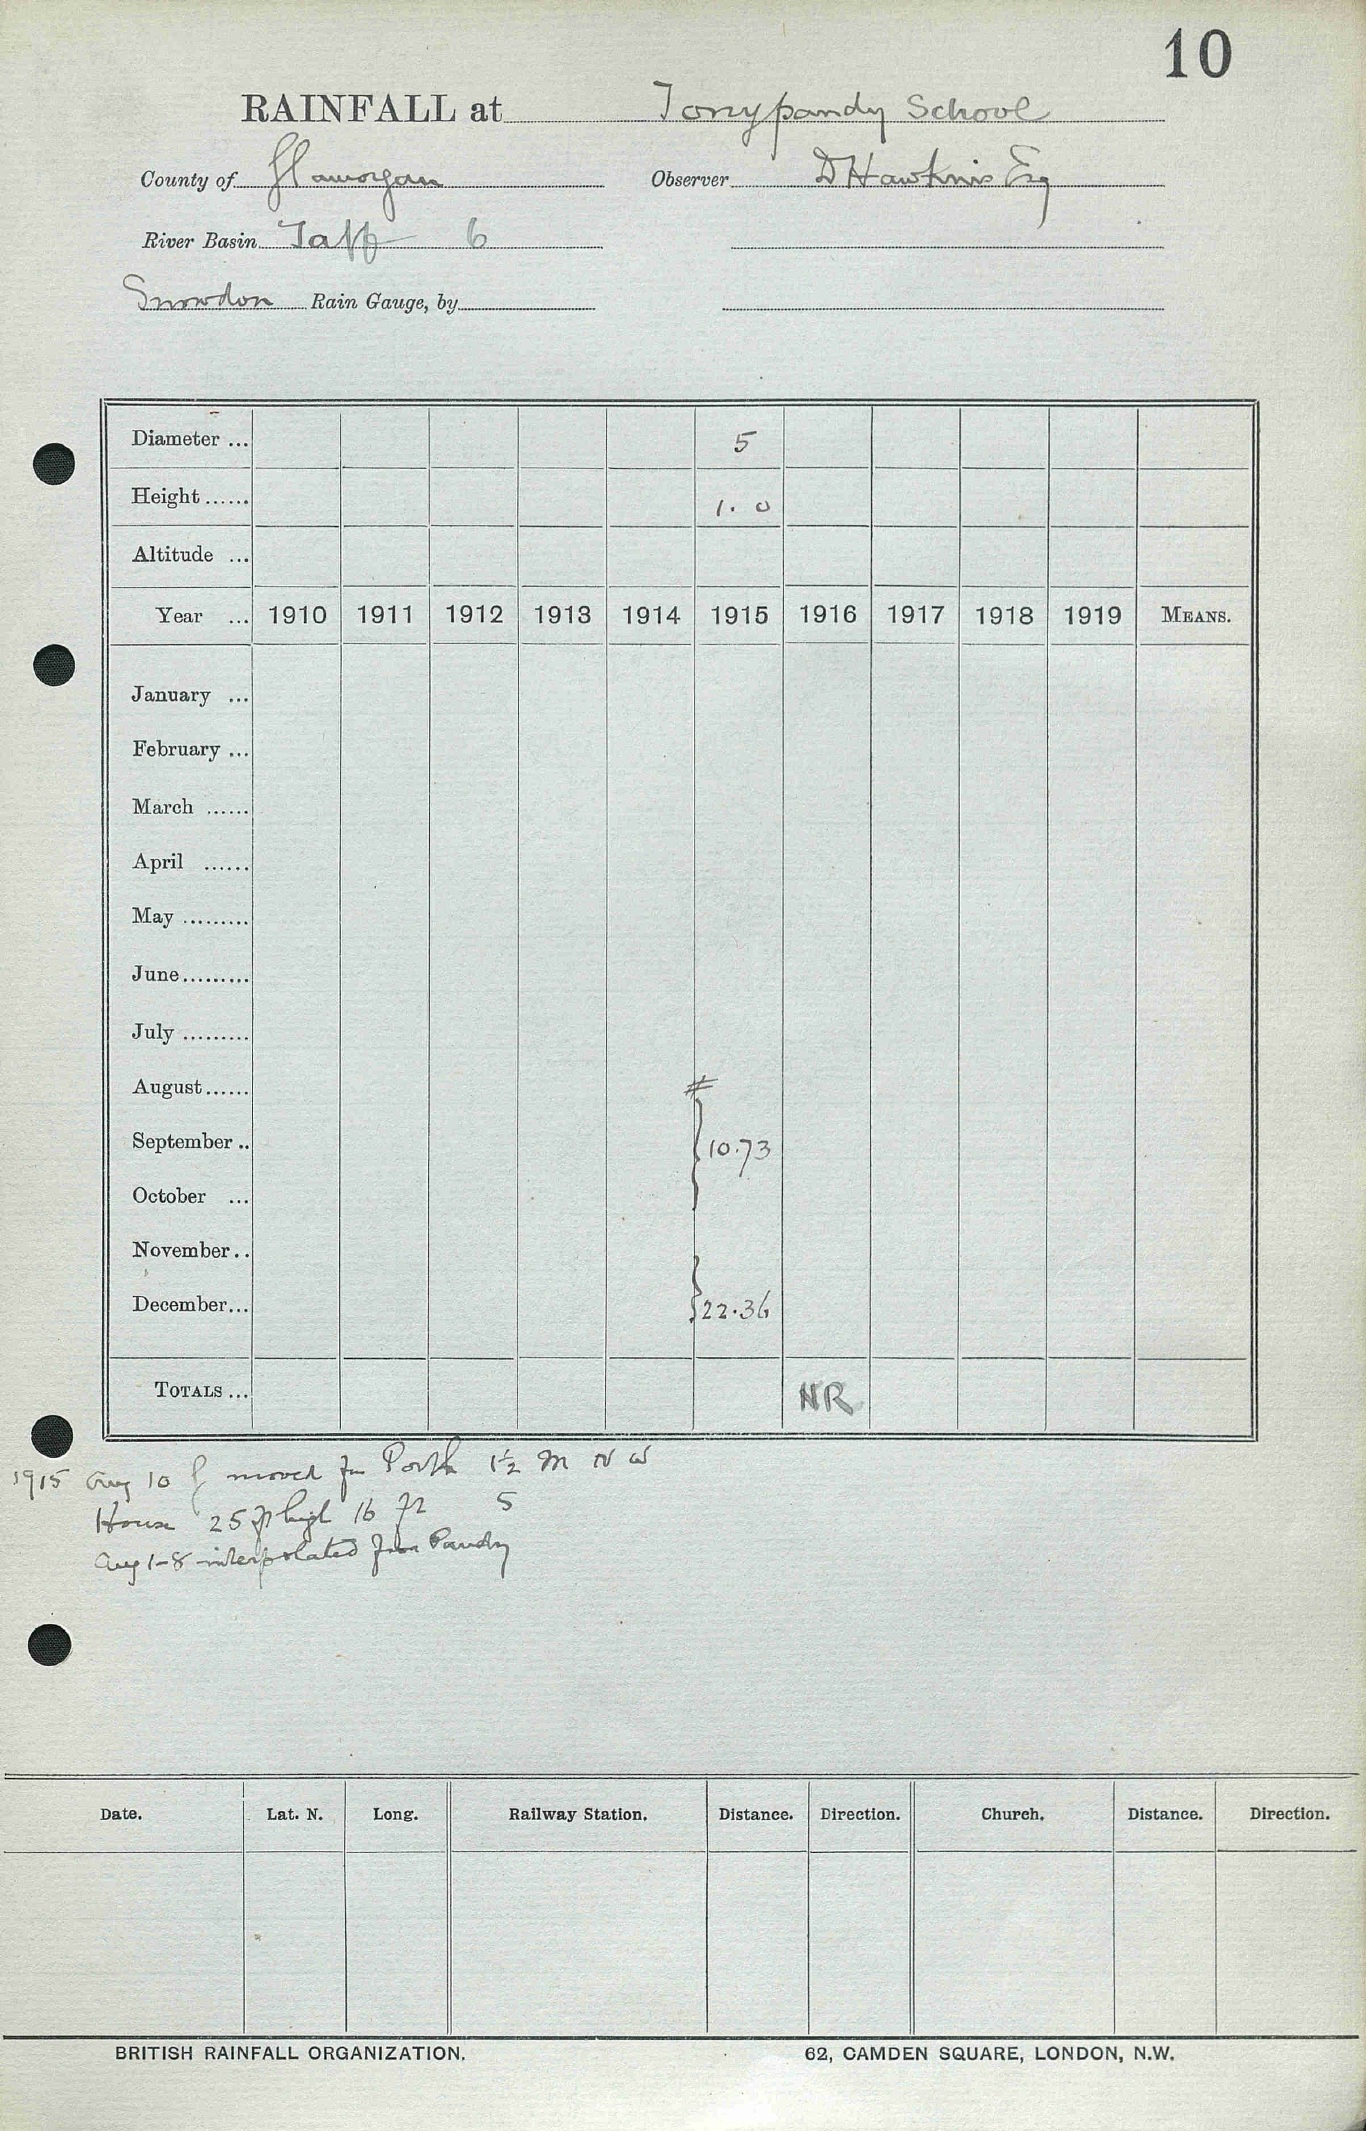 10
RAINFALL at Tonypandy School
County of Glamorgan Observer D Hawkins Esq
River Basin Taff 6
Snowdon Rain Gauge, by
Diameter ... 5
Height ...... 1.0
Altitude ...
Year ... 1910 1911 1912 1913 1914 1915 1916 1917 1918 1919 MEANS.
January ...
February ...
March ......
April ......
May .........
June.........
July .........
August...... #
September .. } 10.73
October ...
November..
December... } 22.36
TOTALS ... NR
1915 Aug 10 moved fm Porth 1½ M N W
House 25 ft high 16 ft S
Aug 1-8 interpolated from Pandy
Date. Lat. N. Long. Railway Station. Distance. Direction. Church. Distance. Direction.
BRITISH RAINFALL ORGANIZATION. 62, CAMDEN SQUARE, LONDON, N.W.